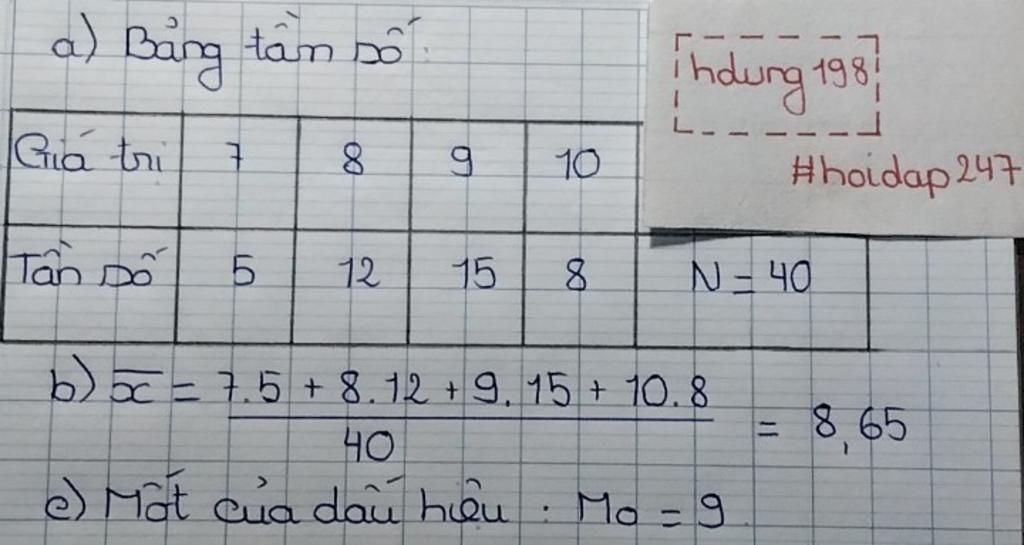 a) Bảng tần số:
hdung 198
#hoidap247
Giá trị 7 8 9 10
Tần số 5 12 15 8 N = 40
b) x̄ = 7.5 + 8.12 + 9.15 + 10.8 / 40 = 8,65
c) Mốt của dấu hiệu : Mo = 9